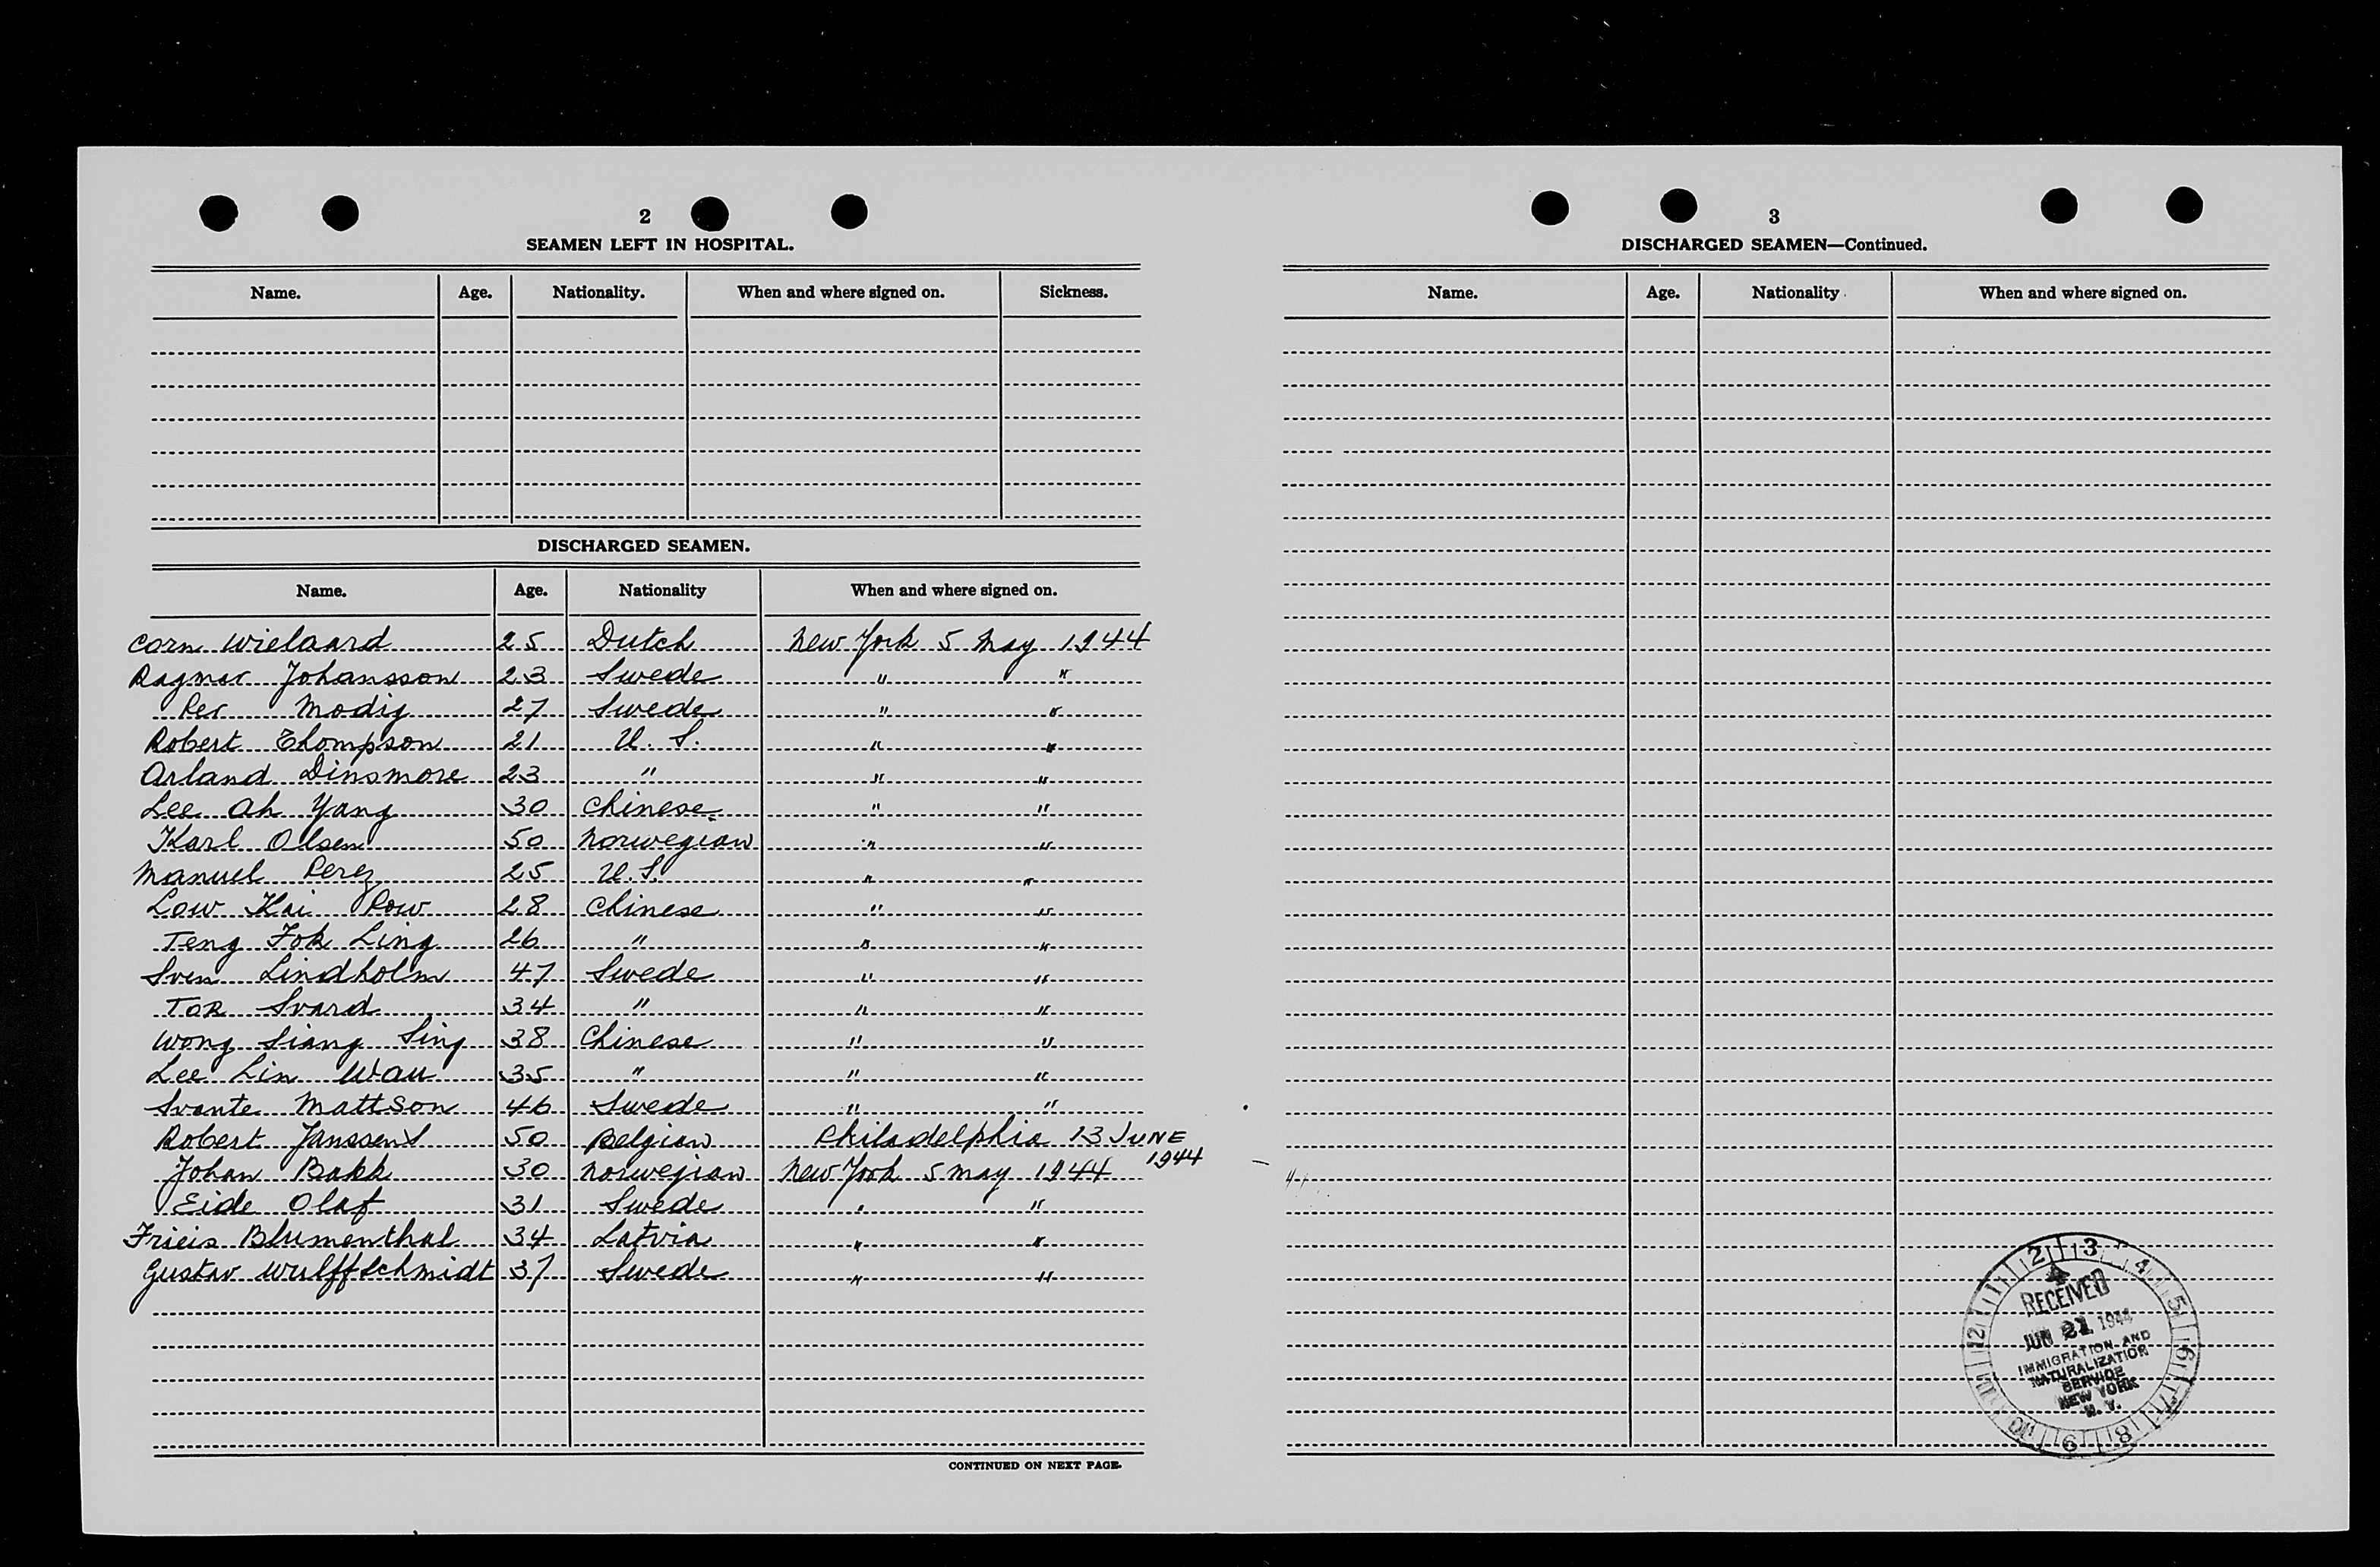 2
SEAMEN LEFT IN HOSPITAL.
Name. Age. Nationality. When and where signed on. Sickness.
DISCHARGED SEAMEN.
Name. Age. Nationality When and where signed on.
Corn Wielaard 25 Dutch New York 5 May 1944
Ragnar Johansson 23 Swede " "
Per Modig 27 Swede " "
Robert Thompson 21 U. S. " "
Arland Dinsmore 23 " " "
Lee Ah Yang 30 Chinese " "
Karl Olsen 50 Norwegian " "
Manuel Perez 25 U.S. " "
Low Kai Pow 28 Chinese " "
Teng Fok Ling 26 " " "
Sven Lindholm 47 Swede " "
TOR Svard 34 " " "
Wong Siang Sing 38 Chinese " "
Lee Lin Wau 35 " " "
Svante Mattson 46 Swede " "
Robert Janssens 50 Belgian Philadelphia 13 JUNE 1944
Johan Bakk 30 Norwegian New York 5 May 1944
Eide Olaf 31 Swede " "
Frieis Blumenthal 34 Latvia " "
Gustav Wulff Schmidt 37 Swede " "
CONTINUED ON NEXT PAGE.
3
DISCHARGED SEAMEN—Continued.
Name. Age. Nationality. When and where signed on.
12 1 2 3 4 5 6 7 8 9 10 11
RECEIVED
JUN 21 1944
IMMIGRATION AND
NATURALIZATION
SERVICE
NEW YORK
N. Y.